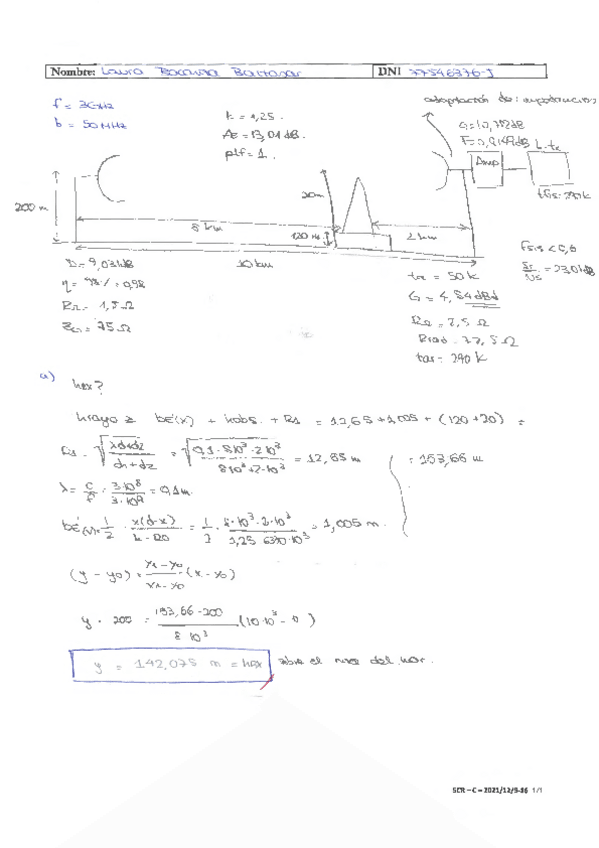 Nombre: Laura DNI 77546376-J
f = 3GHz
b = 50MHz
k = 1,25.
Ae = 13,01 dB.
plf = 1.
adaptación de impedancias
G = 10,792dB
Amp
200 m
8 km
10 km
20m
120 m
2 km
D = 9,031dB
η = 98% = 0,98
RΩ = 1,5Ω
= 75 Ω
ta = 50 k
G = 4,84dBd
RΩ = 2,5 Ω
Rrad = 77,5Ω
tar = 290 k
= 23,01dB
a) hex?
hrayo ≥ be'(x) + hobs. + R1 = 12,65 + 1,005 + (120+20) =
R1 = √(λd1d2 / d1+d2) = √(0,1·8·10³·2·10³ / 8·10³+2·10³) = 12,65 m
= 153,66 m
λ = c/f = 3·10⁸ / 3·10⁹ = 0,1m.
be'(x) = 1/2 · x(d-x) / k·R0 = 1/2 · 8·10³·2·10³ / 1,25·6370·10³ = 1,005 m.
(y - y0) = y1 - y0 / x1 - x0 (x - x0)
y - 200 = 153,66 - 200 / 8·10³ (10·10³ - 0)
y = 142,075 m = hex sobre el nivel del mar.
SCR – C – 2021/12/9-86 1/1